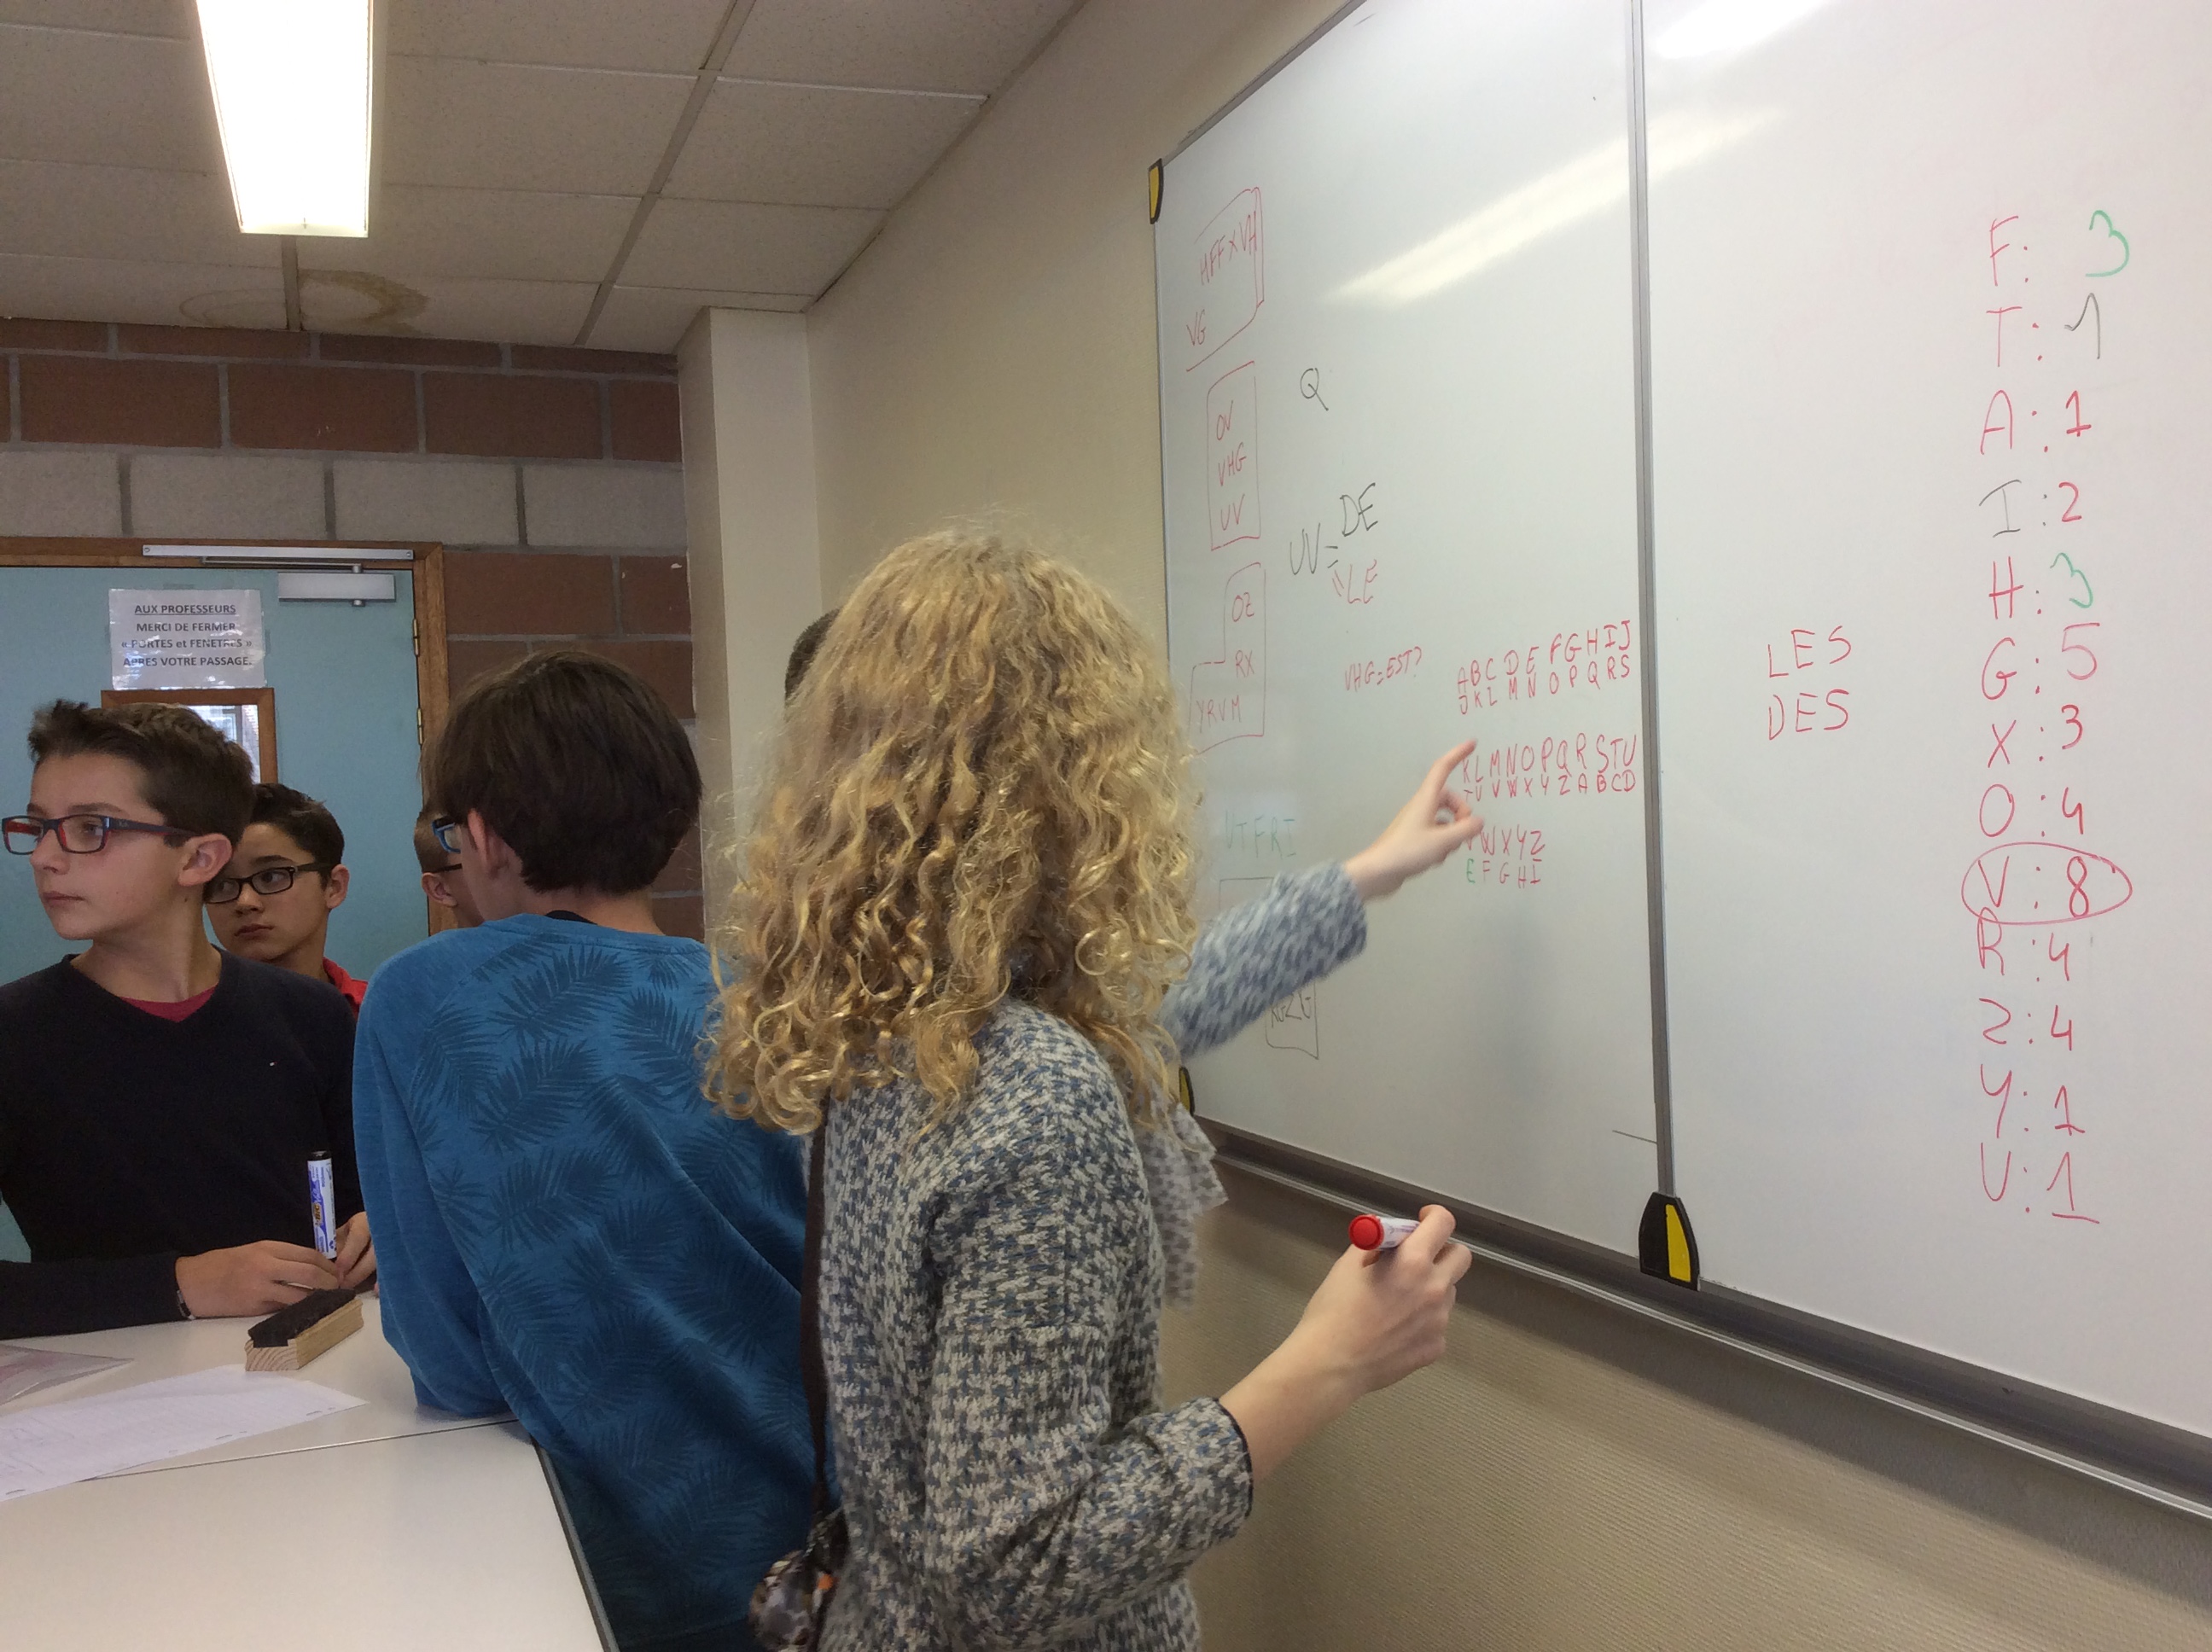 AUX PROFESSEURS
MERCI DE FERMER
« PORTES et FENETRES »
APRES VOTRE PASSAGE.
HFFXVH
VG
OV
VHG
UV
OZ
RX
YRVM
UTFRI
Q
UV = DE
LE
VHG = EST?
ABCDEFGHIJ
JKLMNOPQRS
KLMNOPQRSTU
TUVWXYZABCD
WXYZ
EFGHI
LES
DES
F: 3
T: 1
A: 1
I: 2
H: 3
G: 5
X: 3
O: 4
V: 8
R: 4
Z: 4
Y: 1
U: 1